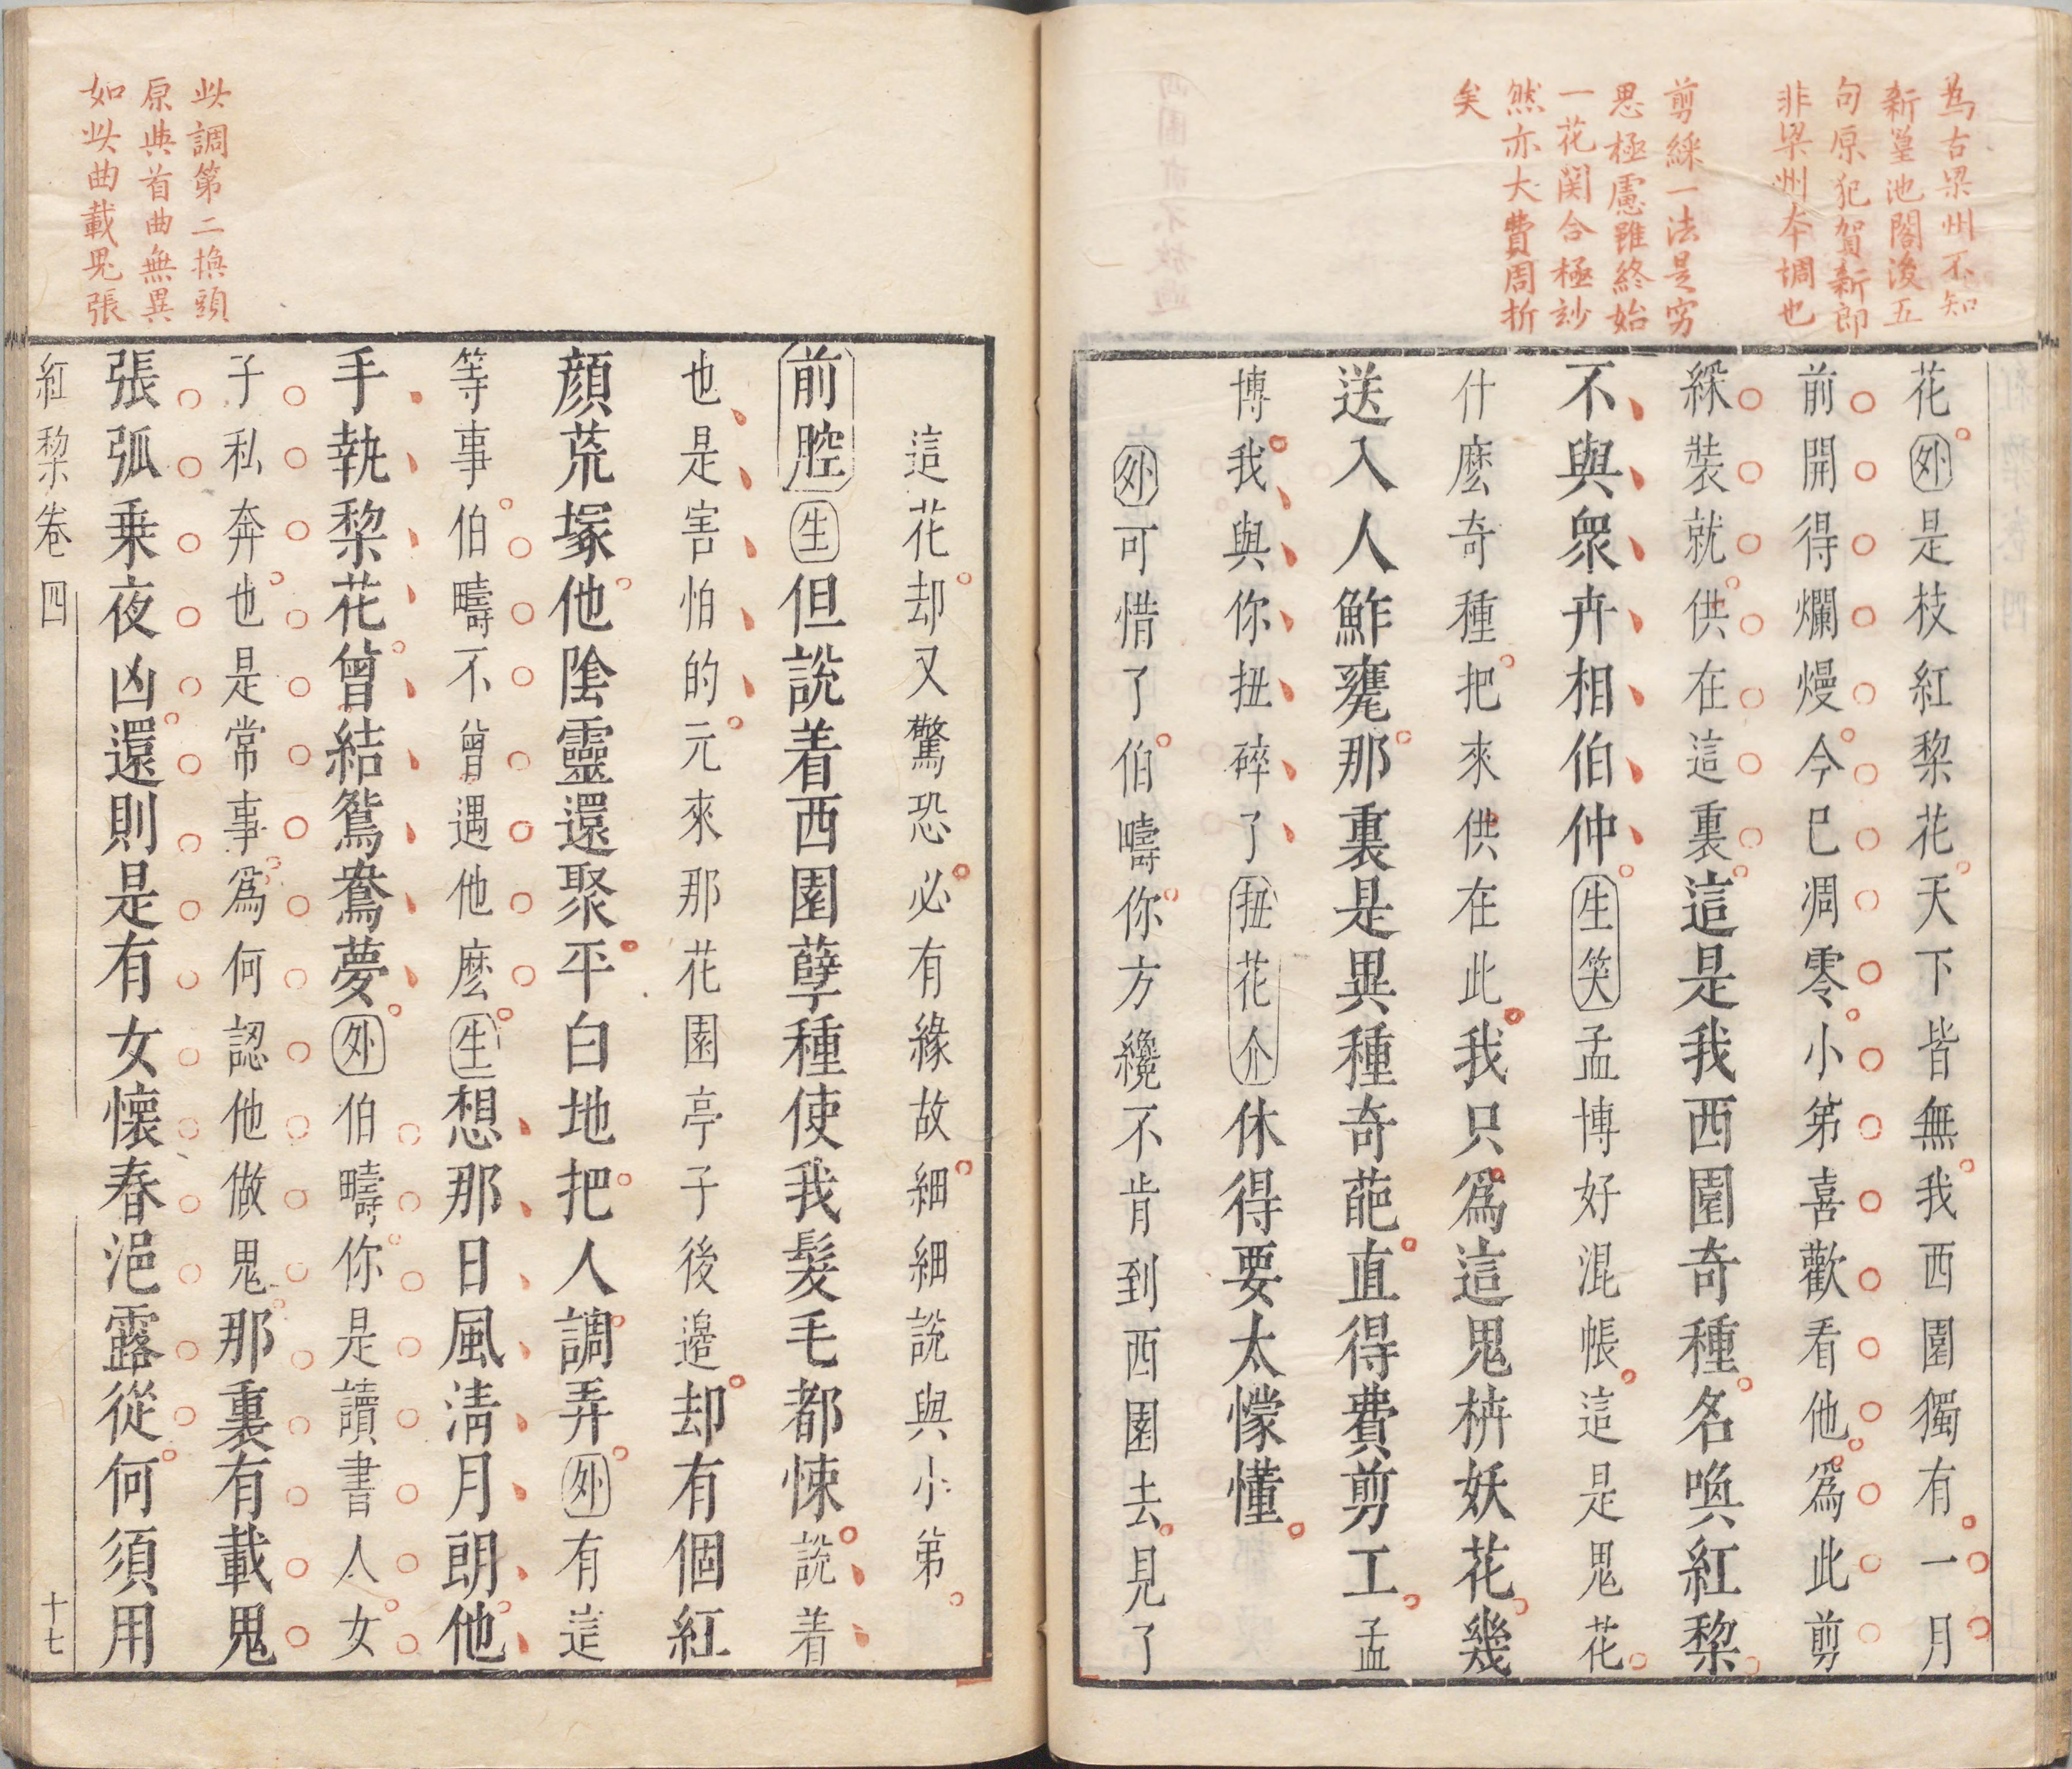 為古梁州不知
新篁池閣後五
句原犯賀新郎
非梁州本調也
剪綵一法是窮
思極慮雖終始
一花関合極妙
然亦大費周折
矣
花外是枝紅棃花天下皆無我西園獨有一月
前開得爛熳今已凋零小苐喜歡看他爲此剪
綵裝就供在這裏這是我西園奇種名喚紅棃
不與衆卉相伯仲生笑孟博好混帳這是鬼花
什麽奇種把來供在此我只爲這鬼栟妖花幾
送入人鮓甕那裏是異種奇葩直得費剪工孟
博我與你扭碎了扭花介休得要太懞懂
外可惜了伯疇你方纔不肯到西園去見了
這花却又驚恐必有緣故細細説與小苐
前腔生但説着西園孽種使我髮毛都悚説着
也是害怕的元來那花園亭子後邉却有個紅
顔荒塚他陰靈還聚平白地把人調弄外有這
等事伯疇不曾遇他麽生想那日風清月朗他
手執棃花曾結鴛鴦夢外伯疇你是讀書人女
子私奔也是常事爲何認他做鬼那裏有載鬼
張弧乗夜凶還則是有女懷春浥露從何須用
此調第二換頭
原與首曲無異
如此曲載鬼張
紅棃卷四
十七